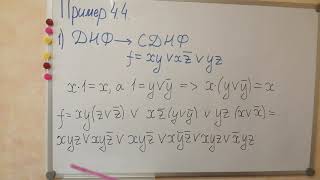 Пример 44
1) ДНФ → СДНФ
f = xy ∨ xz̅ ∨ yz
x·1 = x, а 1 = y∨y̅ => x(y∨y̅) = x
f = xy(z∨z̅) ∨ xz̅(y∨y̅) ∨ yz(x∨x̅) =
xyz∨xyz̅∨ xyz̅∨xy̅z̅∨xyz∨x̅yz